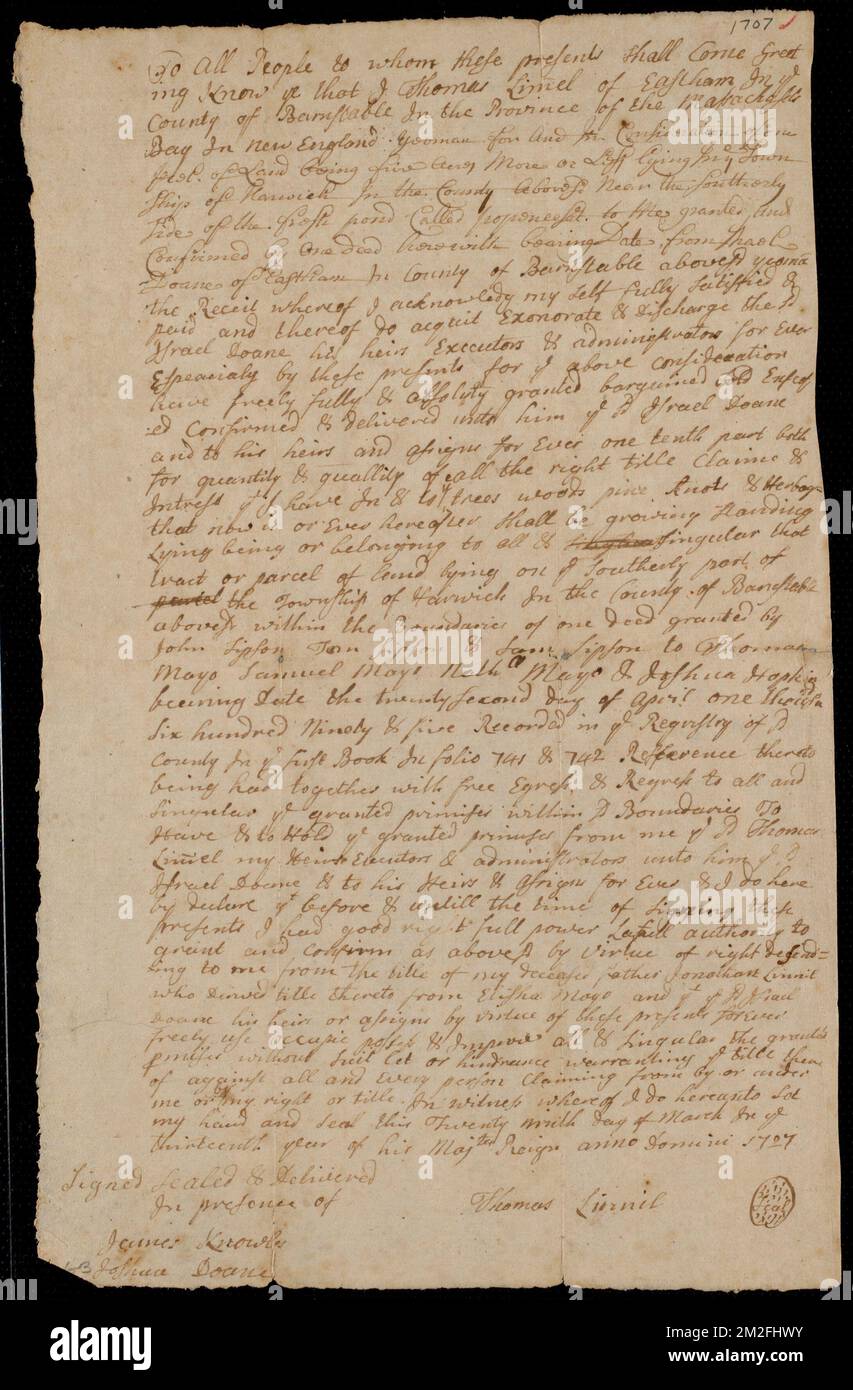 1707
To All People to whom these presents shall Come Greet
ing Know ye that I Thomas Linnel of Eastham In ye
County of Barnstable In the Province of the Massachusets
Bay In new England yeoman for And In Consideration of one
peec of Land being five Acres More or Less lying In ye Town
Ship of Harwich In the County Abovesd Near the Southerly
side of the fresh pond Called to Me granted and
Confirmed by one deed herewith bearing Date from Israel
Doane of Eastham In County of Barnstable abovesd yeoma
the Receit whereof I acknowledg my self fully satisfied &
paid and thereof do acquit Exonorate & Discharge the sd
Israel Doane his heirs Executors & administrators for Ever
Especialy by these presents for ye above consideration
have freely fully & absoluty granted bargained sold Enfeof
ed Confirmed & delivered unto him ye sd Israel Doane
and to his heirs and asigns for Ever one tenth part both
for quantity & quallity of all the right title Claime &
Intrest yt I have In & to ye trees woods pine Knots & Herbag
that now is or Ever hereafter shall be growing standing
Lying being or belonging to all & singular that
tract or parcel of land lying on ye Southerly part of
the Township of Harwich In the County of Barnstable
abovesd within the Boundaries of one deed granted by
John Sipson Tom Sipson & Sam Sipson to Thomas
Mayo Samuel Mayo Nathll Mayo & Joshua Hopkins
beering Date the twenty second day of April one thousan
six hundred Ninety & five Recorded in ye Registry of sd
County In ye first Book In folio 741 & 742 Refference thereto
being had together with free Egress & Regress to all and
singular ye granted primises within sd Boundaries To
Have & to Hold ye granted primises from me ye sd Thomas
Linnel my Heirs Executors & administrators unto him ye sd
Israel Doane & to his Heirs & asigns for Ever & I do here
by declare yt before & untill the time of signing these
presents I had good right full power Lafull authority to
grant and confirm as abovesd by virtue of right desend=
ing to me from the title of my deceased father Jonathan Linnil
who derived title thereto from Elisha Mayo and yt ye sd Israel
Doane his heirs or asigns by virtue of these presents forever
freely use occupie poses & Improve all & singular the granted
pmises without suit let or hindrance warranting ye title there
of against all and Every person Claiming from by or under
me or my right or title. In witness whereof I do hereunto set
my hand and seal this Twenty ninth day of March In ye
thirteenth year of his Majtes Reign anno Domini 1727
Signed sealed & Delivered
In presence of
Thomas Linnil
Seal
James Knowles
Joshua Doane
alamy
Image ID: 2M2FHWY
www.alamy.com